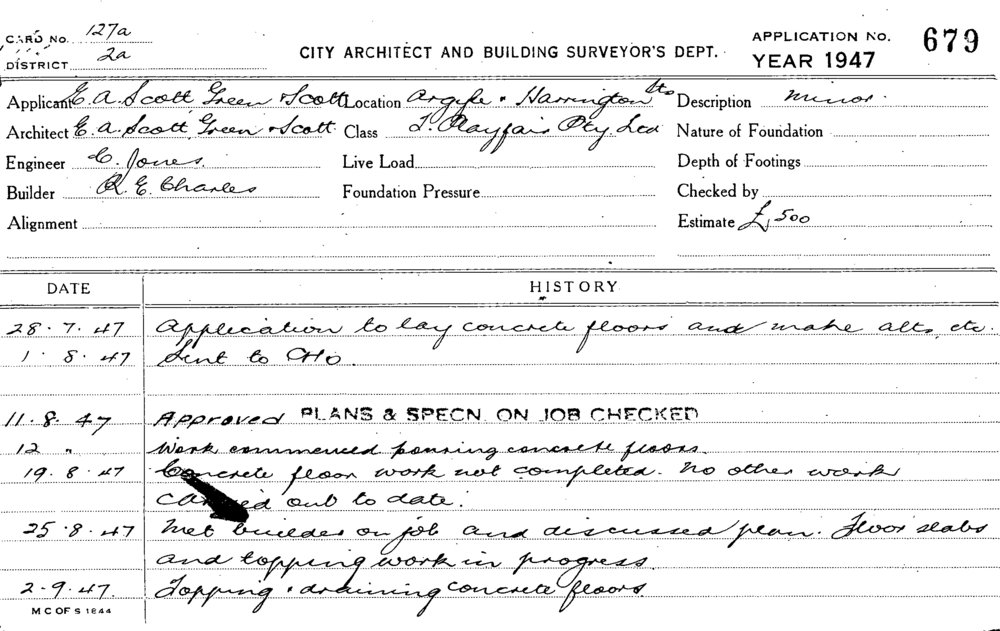 CARD NO. 127a
DISTRICT 2a
CITY ARCHITECT AND BUILDING SURVEYOR'S DEPT.
APPLICATION NO. 679
YEAR 1947
Applicant E. A. Scott Green & Scott Location Argyle & Harrington Sts Description Minor.
Architect E. A. Scott, Green & Scott. Class T. Playfair Pty. Ltd Nature of Foundation
Engineer C. Jones. Live Load Depth of Footings
Builder R. E. Charles Foundation Pressure Checked by
Alignment Estimate £500
DATE HISTORY
28.7.47 Application to lay concrete floors and make alts, etc.
1.8.47 Sent to CHO.
11.8.47 Approved PLANS & SPECN. ON JOB CHECKED
12 " Work commenced pouring concrete floors.
19.8.47 Concrete floor work not completed. No other work
carried out to date.
25.8.47 Met builder on job and discussed plan. Floor slabs
and topping work in progress.
2.9.47. Topping & draining concrete floors.
M C OF S 1844